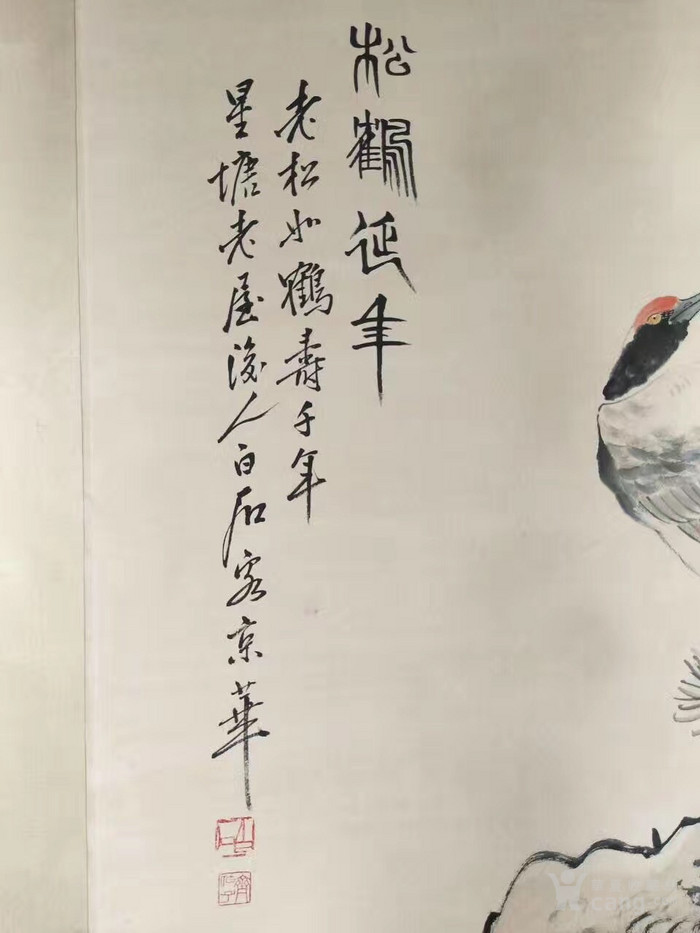 松鶴延年
老松如鶴壽千年
星塘老屋後人白石客京華